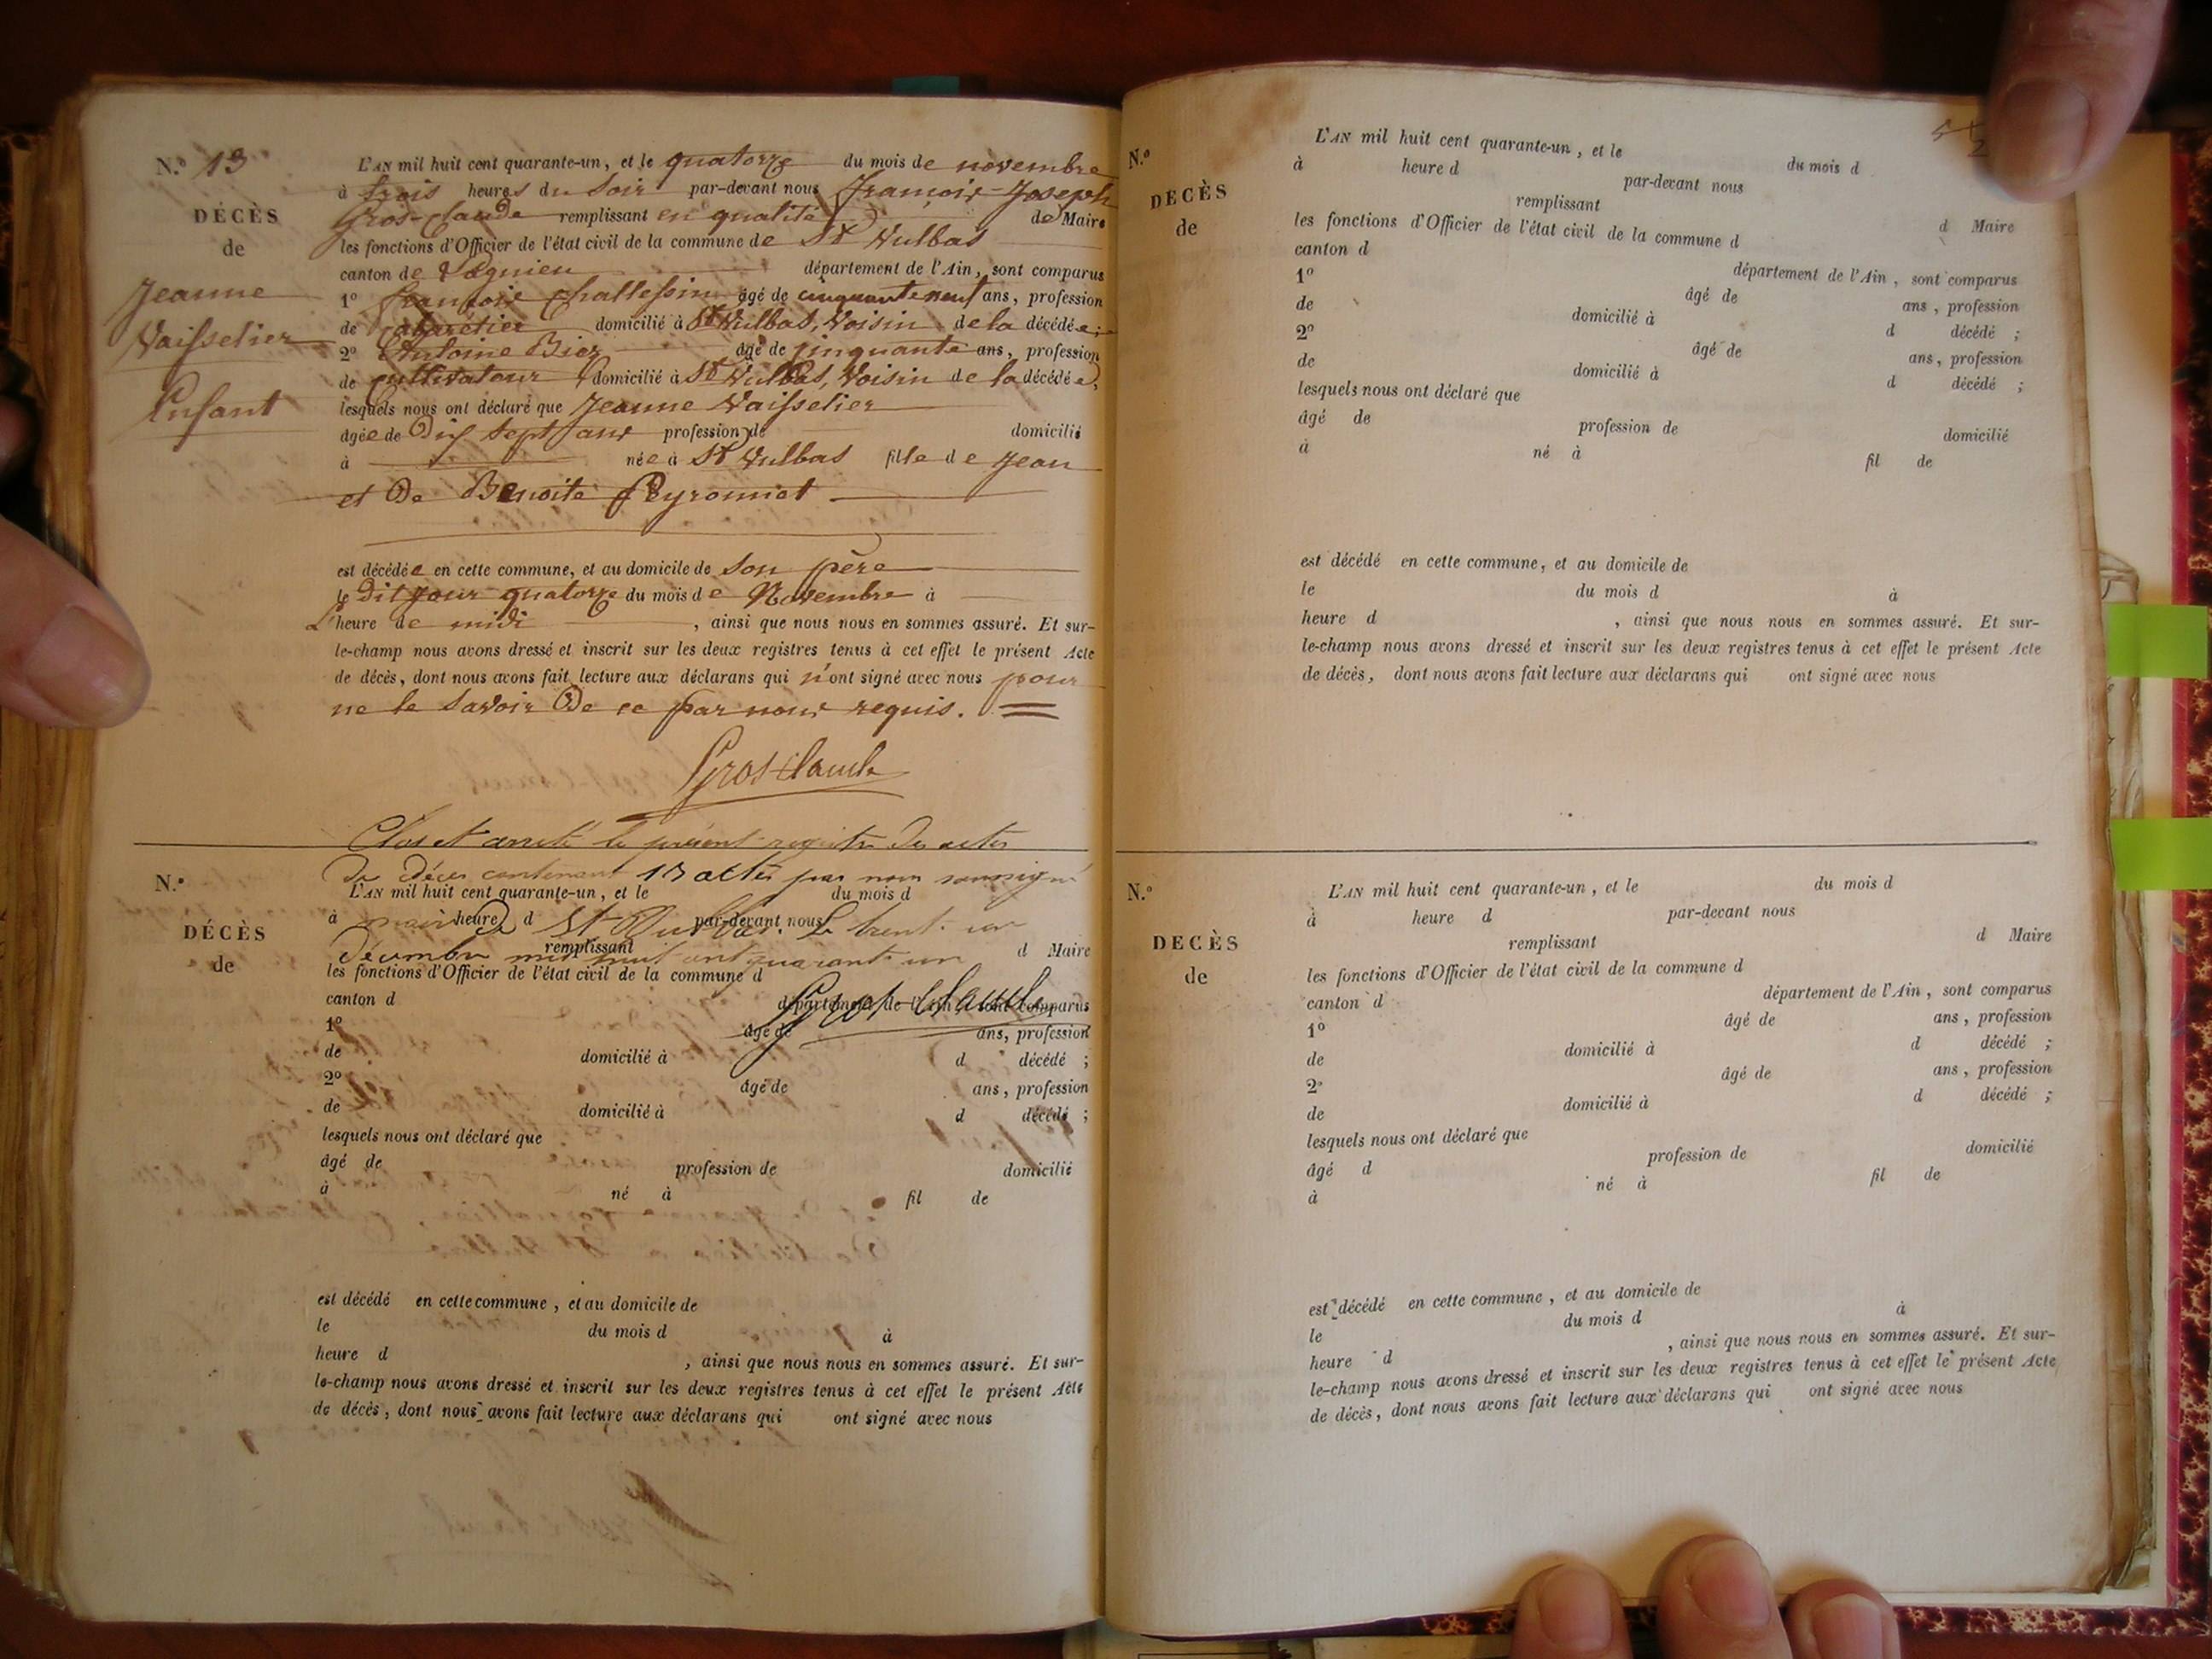 N.º 13
DÉCÈS
de
Jeanne
Vaisselier
Enfant
L'AN mil huit cent quarante-un, et le quatorze du mois de novembre
à trois heures du soir par-devant nous françois-Joseph
Gros-Claude remplissant en qualité de Maire
les fonctions d'Officier de l'état civil de la commune de St Vulbas
canton de Lagnieu département de l'Ain, sont comparus
1º françois Challessin âgé de cinquante neuf ans, profession
de cabaretier domicilié à St Vulbas, Voisin de la décédée;
2º Antoine Bier âgé de cinquante ans, profession
de cultivateur domicilié à St Vulbas, Voisin de la décédée,
lesquels nous ont déclaré que Jeanne Vaisselier
âgée de Dix sept ans profession de domicilié
à née à St Vulbas fille de Jean
et De Benoite Peyronnet
est décédée en cette commune, et au domicile de son père
le dit jour quatorze du mois de Novembre à
L'heure de midi , ainsi que nous nous en sommes assuré. Et sur-
le-champ nous avons dressé et inscrit sur les deux registres tenus à cet effet le présent Acte
de décès, dont nous avons fait lecture aux déclarans qui n'ont signé avec nous pour
ne le savoir De ce par nous requis.
Gros-Claude
Clos et arreté le présent registre des actes
de décès contenant 13 actes par nous soussigné
maire de St Vulbas. le trente un
décembre mil huit cent quarante un
Gros-Claude
N.º
DÉCÈS
de
L'AN mil huit cent quarante-un, et le du mois d
à heure d par-devant nous
remplissant d Maire
les fonctions d'Officier de l'état civil de la commune d
canton d département de l'Ain, sont comparus
1º âgé de ans, profession
de domicilié à d décédé ;
2º âgé de ans, profession
de domicilié à d décédé ;
lesquels nous ont déclaré que
âgé de profession de domicilié
à né à fil de
est décédé en cette commune, et au domicile de
le du mois d à
heure d , ainsi que nous nous en sommes assuré. Et sur-
le-champ nous avons dressé et inscrit sur les deux registres tenus à cet effet le présent Acte
de décès, dont nous avons fait lecture aux déclarans qui ont signé avec nous
N.º
DÉCÈS
de
L'AN mil huit cent quarante-un, et le du mois d
à heure d par-devant nous
remplissant d Maire
les fonctions d'Officier de l'état civil de la commune d
canton d département de l'Ain, sont comparus
1º âgé de ans, profession
de domicilié à d décédé ;
2º âgé de ans, profession
de domicilié à d décédé ;
lesquels nous ont déclaré que
âgé de profession de domicilié
à né à fil de
est décédé en cette commune, et au domicile de
le du mois d à
heure d , ainsi que nous nous en sommes assuré. Et sur-
le-champ nous avons dressé et inscrit sur les deux registres tenus à cet effet le présent Acte
de décès, dont nous avons fait lecture aux déclarans qui ont signé avec nous
N.º
DECÈS
de
L'AN mil huit cent quarante-un, et le du mois d
à heure d par-devant nous
remplissant d Maire
les fonctions d'Officier de l'état civil de la commune d
canton d département de l'Ain, sont comparus
1º âgé de ans, profession
de domicilié à d décédé ;
2º âgé de ans, profession
de domicilié à d décédé ;
lesquels nous ont déclaré que
âgé d profession de domicilié
à né à fil de
est décédé en cette commune, et au domicile de
le du mois d à
heure d , ainsi que nous nous en sommes assuré. Et sur-
le-champ nous avons dressé et inscrit sur les deux registres tenus à cet effet le présent Acte
de décès, dont nous avons fait lecture aux déclarans qui ont signé avec nous